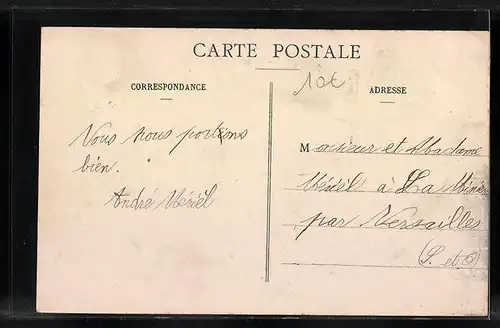 CARTE POSTALE
CORRESPONDANCE
10€
ADRESSE
Nous nous portons
bien.
André Mériel
Monsieur et Madame
Mériel à La Minière
par Versailles
(S. et O)